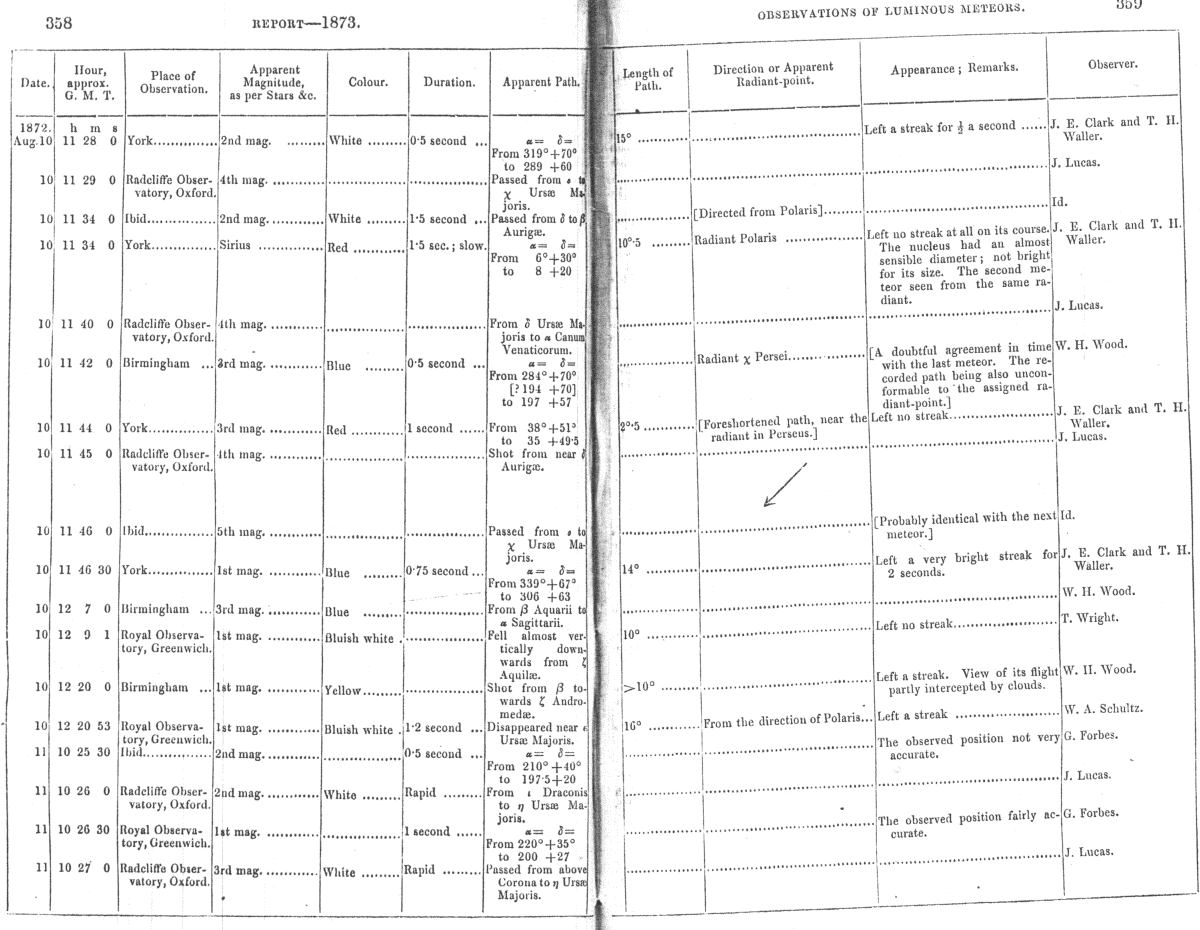 358 REPORT—1873.
Date. Hour, approx. G. M. T. Place of Observation. Apparent Magnitude, as per Stars &c. Colour. Duration. Apparent Path.
1872. h m s
Aug.10 11 28 0 York............... 2nd mag. ........ White ......... 0·5 second ... α= δ=
From 319°+70°
to 289 +60
10 11 29 0 Radcliffe Obser- 4th mag. ............ .................. .................. Passed from ο to
vatory, Oxford. χ Ursæ Ma-
joris.
10 11 34 0 Ibid............... 2nd mag. ............ White ......... 1·5 second ... Passed from δ to β
Aurigæ.
10 11 34 0 York............... Sirius ............... Red ............ 1·5 sec.; slow. α= δ=
From 6°+30°
to 8 +20
10 11 40 0 Radcliffe Obser- 4th mag. ............ .................. .................. From δ Ursæ Ma-
vatory, Oxford. joris to α Canum
Venaticorum.
10 11 42 0 Birmingham ... 3rd mag. ............ Blue ......... 0·5 second ... α= δ=
From 284°+70°
[? 194 +70]
to 197 +57
10 11 44 0 York............... 3rd mag. ............ Red ............ 1 second ...... From 38°+51°
to 35 +49·5
10 11 45 0 Radcliffe Obser- 4th mag. ............ .................. .................. Shot from near δ
vatory, Oxford. Aurigæ.
10 11 46 0 Ibid............... 5th mag. ............ .................. .................. Passed from ο to
χ Ursæ Ma-
joris.
10 11 46 30 York............... 1st mag. ............ Blue ......... 0·75 second ... α= δ=
From 339°+67°
to 306 +63
10 12 7 0 Birmingham ... 3rd mag. ............ Blue ............ .................. From β Aquarii to
α Sagittarii.
10 12 9 1 Royal Observa- 1st mag. ............ Bluish white . .................. Fell almost ver-
tory, Greenwich. tically down-
wards from ζ
Aquilæ.
10 12 20 0 Birmingham ... 1st mag. ............ Yellow......... .................. Shot from β to-
wards ζ Andro-
medæ.
10 12 20 53 Royal Observa- 1st mag. ............ Bluish white . 1·2 second ... Disappeared near ε
tory, Greenwich. Ursæ Majoris.
11 10 25 30 Ibid............... 2nd mag. ............ .................. 0·5 second ... α= δ=
From 210°+40°
to 197·5+20
11 10 26 0 Radcliffe Obser- 2nd mag. ............ White ......... Rapid ......... From ι Draconis
vatory, Oxford. to η Ursæ Ma-
joris.
11 10 26 30 Royal Observa- 1st mag. ............ .................. 1 second ...... α= δ=
tory, Greenwich. From 220°+35°
to 200 +27
11 10 27 0 Radcliffe Obser- 3rd mag. ............ White ......... Rapid ......... Passed from above
vatory, Oxford. Corona to η Ursæ
Majoris.
OBSERVATIONS OF LUMINOUS METEORS. 359
Length of Path. Direction or Apparent Radiant-point. Appearance; Remarks. Observer.
15° ............ .................. Left a streak for ½ a second ...... J. E. Clark and T. H.
Waller.
.................. .................. .................. J. Lucas.
.................. [Directed from Polaris]........ .................. Id.
10°·5 ......... Radiant Polaris ............... Left no streak at all on its course. J. E. Clark and T. H.
The nucleus had an almost Waller.
sensible diameter; not bright
for its size. The second me-
teor seen from the same ra-
diant.
.................. .................. .................. J. Lucas.
.................. Radiant χ Persei............... [A doubtful agreement in time W. H. Wood.
with the last meteor. The re-
corded path being also uncon-
formable to the assigned ra-
diant-point.]
2°·5 ......... [Foreshortened path, near the Left no streak.................. J. E. Clark and T. H.
radiant in Perseus.] Waller.
.................. .................. .................. J. Lucas.
.................. .................. [Probably identical with the next Id.
meteor.]
14° ............ .................. Left a very bright streak for J. E. Clark and T. H.
2 seconds. Waller.
.................. .................. .................. W. H. Wood.
10° ............ .................. Left no streak.................. T. Wright.
>10° ......... .................. Left a streak. View of its flight W. H. Wood.
partly intercepted by clouds.
16° ............ From the direction of Polaris... Left a streak .................. W. A. Schultz.
.................. .................. The observed position not very G. Forbes.
accurate.
.................. .................. .................. J. Lucas.
.................. .................. The observed position fairly ac- G. Forbes.
curate.
.................. .................. .................. J. Lucas.